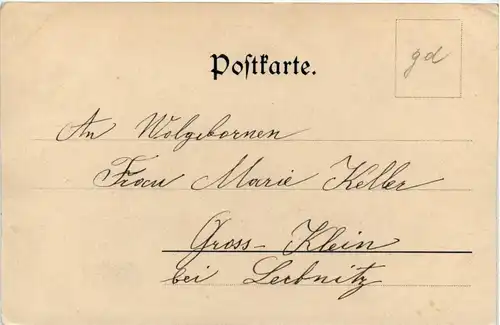 Postkarte.
gd
An Wolgebornen
Frau Marie Keller
Gross-Klein
bei Leibnitz